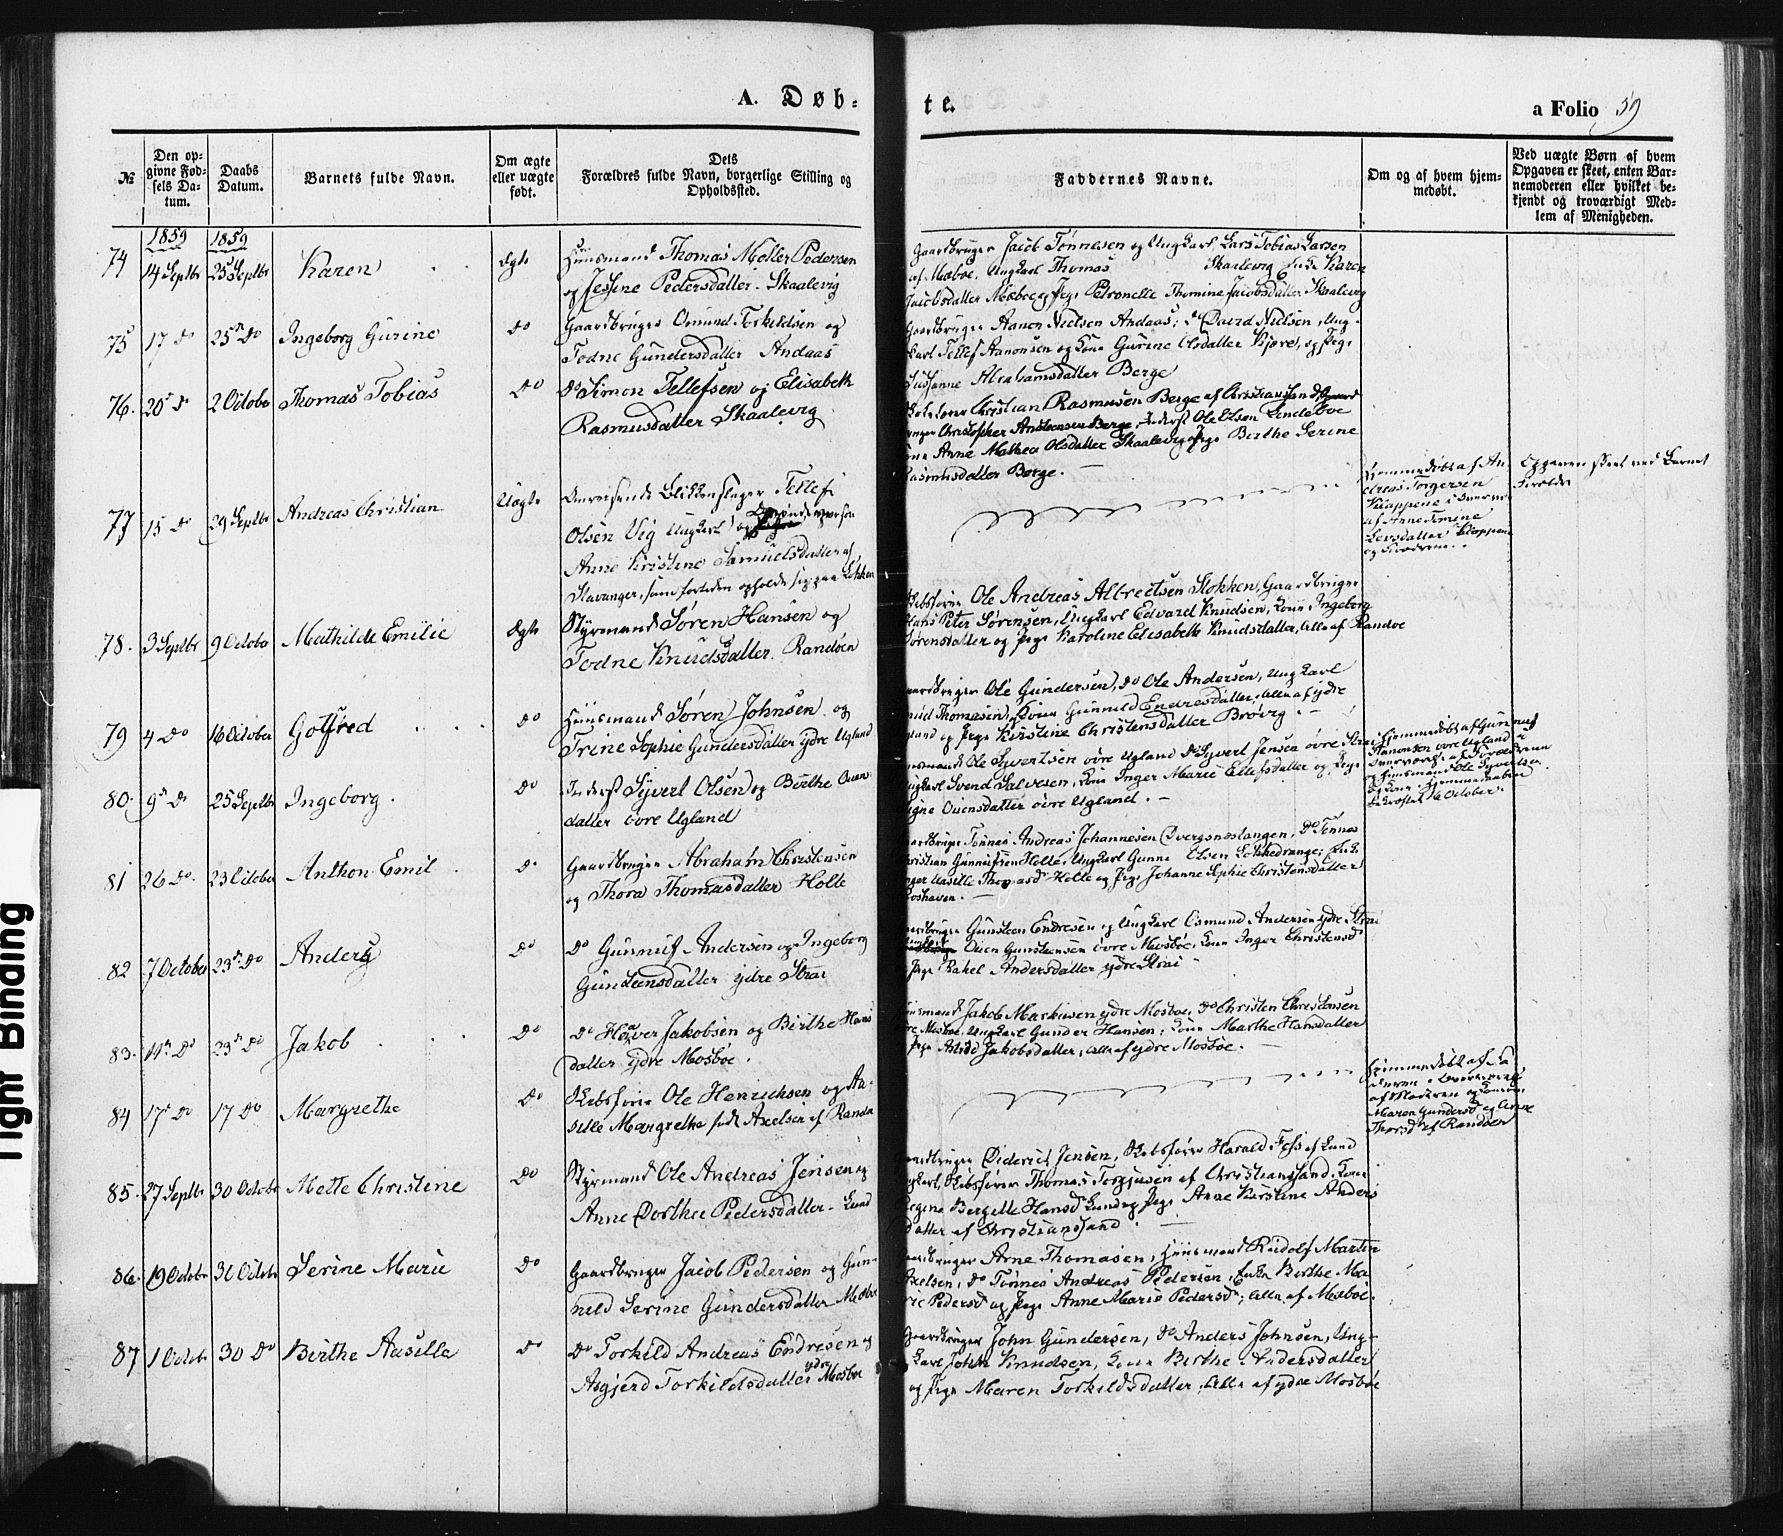 A. Døb-
te.
a Folio 59
№
Den opgivne Fødsels Datum.
Daabs Datum.
Barnets fulde Navn.
Om ægte eller uægte født.
Dets Forældres fulde Navn, borgerlige Stilling og Opholdssted.
Faddernes Navne.
Om og af hvem hjemmedøbt.
Ved uægte Børn af hvem Opgaven er skeet, enten Barnemoderen eller hvilket bekjendt og troværdigt Medlem af Menigheden.
1859 1859
74 14 Septbr 25 Septbr Karen Ægte Huusmand Thomas Møller Pedersen
og Jessine Pedersdatter Skaalevig
Gaardbruger Jacob Tønnesen og Ungkarl Lars Tobias Larsen
af Mæboe, Ungkarl Thomas Skaalevig Enke Karen
Jacobsdatter Mæboe og Pige Petronelle Thomine Jacobsdatter Skaalevig
75 17 Do 25 Do Ingeborg Gurine Do Gaardbruger Osmund Torkildsen og
Todne Gundersdatter Andaas
Gaardbruger Aanon Nielsen Andaas, Do David Nielsen, Ung-
karl Tellef Aanonsen og Kone Gurine Olsdatter Kjøre, og Pige
Susanne Abrahamsdatter Berge
76. 20 D 2 Octobr Thomas Tobias Do Do Simon Tellefsen og Elisabeth
Rasmusdatter Skaalevig
Christian Rasmussen Berge af Christianssand, Gaard
bruger Christopher Anstensen Berge, Inderst Ole Olsen Lindeboe
Kone Anne Mathea Olsdatter Skaalevig og Pige Birthe Serine
Rasmusdatter Berge. -
77 15 Do 29 Septbr Andreas Christian Uægte Omreisende Blikkenslager Tellef
Olsen Vig Ungkarl og
Anne Kristine Samuelsdatter af
Stavanger, som for tiden opholde sig paa Løkken
Hjemmedøbt af An
dreas Torgersen
Kloppene i Overvær
af Anne Temine
Larsdatter Kloppene
og Forældrene.
Opgaven skeet ved Barnets
Forældre
78. 3 Septbr 9 Octobr Mathilde Emilie Ægte Styrmand Søren Hansen og
Todne Knudsdatter. Randøen
Skibsfører Ole Andreas Albrectsen Stokken, Gaardbruger
Hans Peter Sørensen, Ungkarl Edvard Knudsen, Kone Ingeborg
Sørensdatter og Pige Karoline Elisabeth Knudsdatter, Alle af Randøe
79 4 Do 16 October Gotfred Do Huusmand Søren Johnsen og
Trine Sophie Gundersdatter ydre Ugland
Gaardbruger Ole Gundersen, Do Ole Andersen, Ungkarl
Thomassen, Kone Gunnild Endresdatter, Alle af ydre
Ugland og Pige Kirstine Christensdatter Brøvig. -
80. 9 D 25 Septbr Ingeborg. Do Inderst Syvert Olsen og Birthe Ouens
datter øvre Ugland
Huusmand Ole Syvertsen øvre Ugland Do Syvert Jensen øvre Strai
Ungkarl Svend Salvesen, Kone Inger Marie Ellefsdatter og Pige
Signe Ouensdatter øvre Ugland. -
Hjemmedøbt af Gunnuf
Aanonsen øvre Ugland i
Overværelse af Forældrene
og Huusmand Ole Syvertsen
og Kone.
bekræftet 16 October.
81 26 Do. 23 October Anthon Emil. D Gaardbruger Abraham Christensen
og Thora Thomasdatter Holte
Gaardbruger Tønnes Andreas Johannesen Dvergsnestangen, Do Tønnes
Christian Gunnufsen Holte, Ungkarl Gunne Olsen
Inger Aasille Thomasd Holte og Pige Johanne Sophie Christensdatter
Roshaven. -
82 7 October 23 Do Anders Do Do Gunnuf Andersen og Ingeborg
Gunsteensdatter ydre Strai
Gaardbruger Gunsteen Endresen og Ungkarl Osmund Andersen ydre Strai
Ouen Gunsteensen øvre Mosbøe, Kone Inger Christensd
Pige Rakel Andersdatter ydre Strai -
83. 14 Do 23 Do Jakob Do Do Haaver Jakobsen og Birthe Hans
datter ydre Mosbøe.
Huusmand Jakob Markusen ydre Mosbøe, Do Christen Christensen
øvre Mosbøe, Ungkarl Gunder Hansen, Kone Marthe Hansdatter
Pige Astrid Jakobsdatter, Alle af ydre Mosbøe. -
84 17 Do 17 Do Margrethe Do Skibsfører Ole Henrichsen og Aa-
sille Margrethe født Axelsen af Randøe
Hjemmedøbt af Fa
deren i Overværelse
af Moderen og Konerne
Maren Gundersd og Anne
Thorsd af Randøen
85. 27 Septbr 30 Octobr Mette Christine Do Styrmand Ole Andreas Jensen og
Anne Dorthea Pedersdatter - Lund
Gaardbruger Diderick Jensen, Skibsfører Harald Foss af Lund
Ungkarl, Skibsfører Thomas Torjusen af Christianssand, Kone
Regine Bergitte Hansd Lund og Pige Anne Kirstine Anders
datter af Christianssand. -
86. 19 Octobr 30 Octobr Serine Marie Do Gaardbruger Jacob Pedersen og Gun-
nild Serine Gundersdatter Mæboe
Gaardbruger Arne Thomasen, Huusmand Rudolf Martin
Axelsen, Do Tønnes Andreas Pedersen, Enke Birthe Ma
rie Pedersd og Pige Anne Marie Pedersd, Alle af Mæboe.
87 1 Octobr 30 Do Birthe Aasille Do Do Torkild Andreas Endresen og
Asgjerd Torkildsdatter ydre Mosbøe
Gaardbruger John Gundersen, Do Anders Johnsen, Ung-
karl John Knudsen, Kone Birthe Andersdatter
og Pige Maren Torkildsdatter, Alle af ydre Mosbøe
Tight Binding